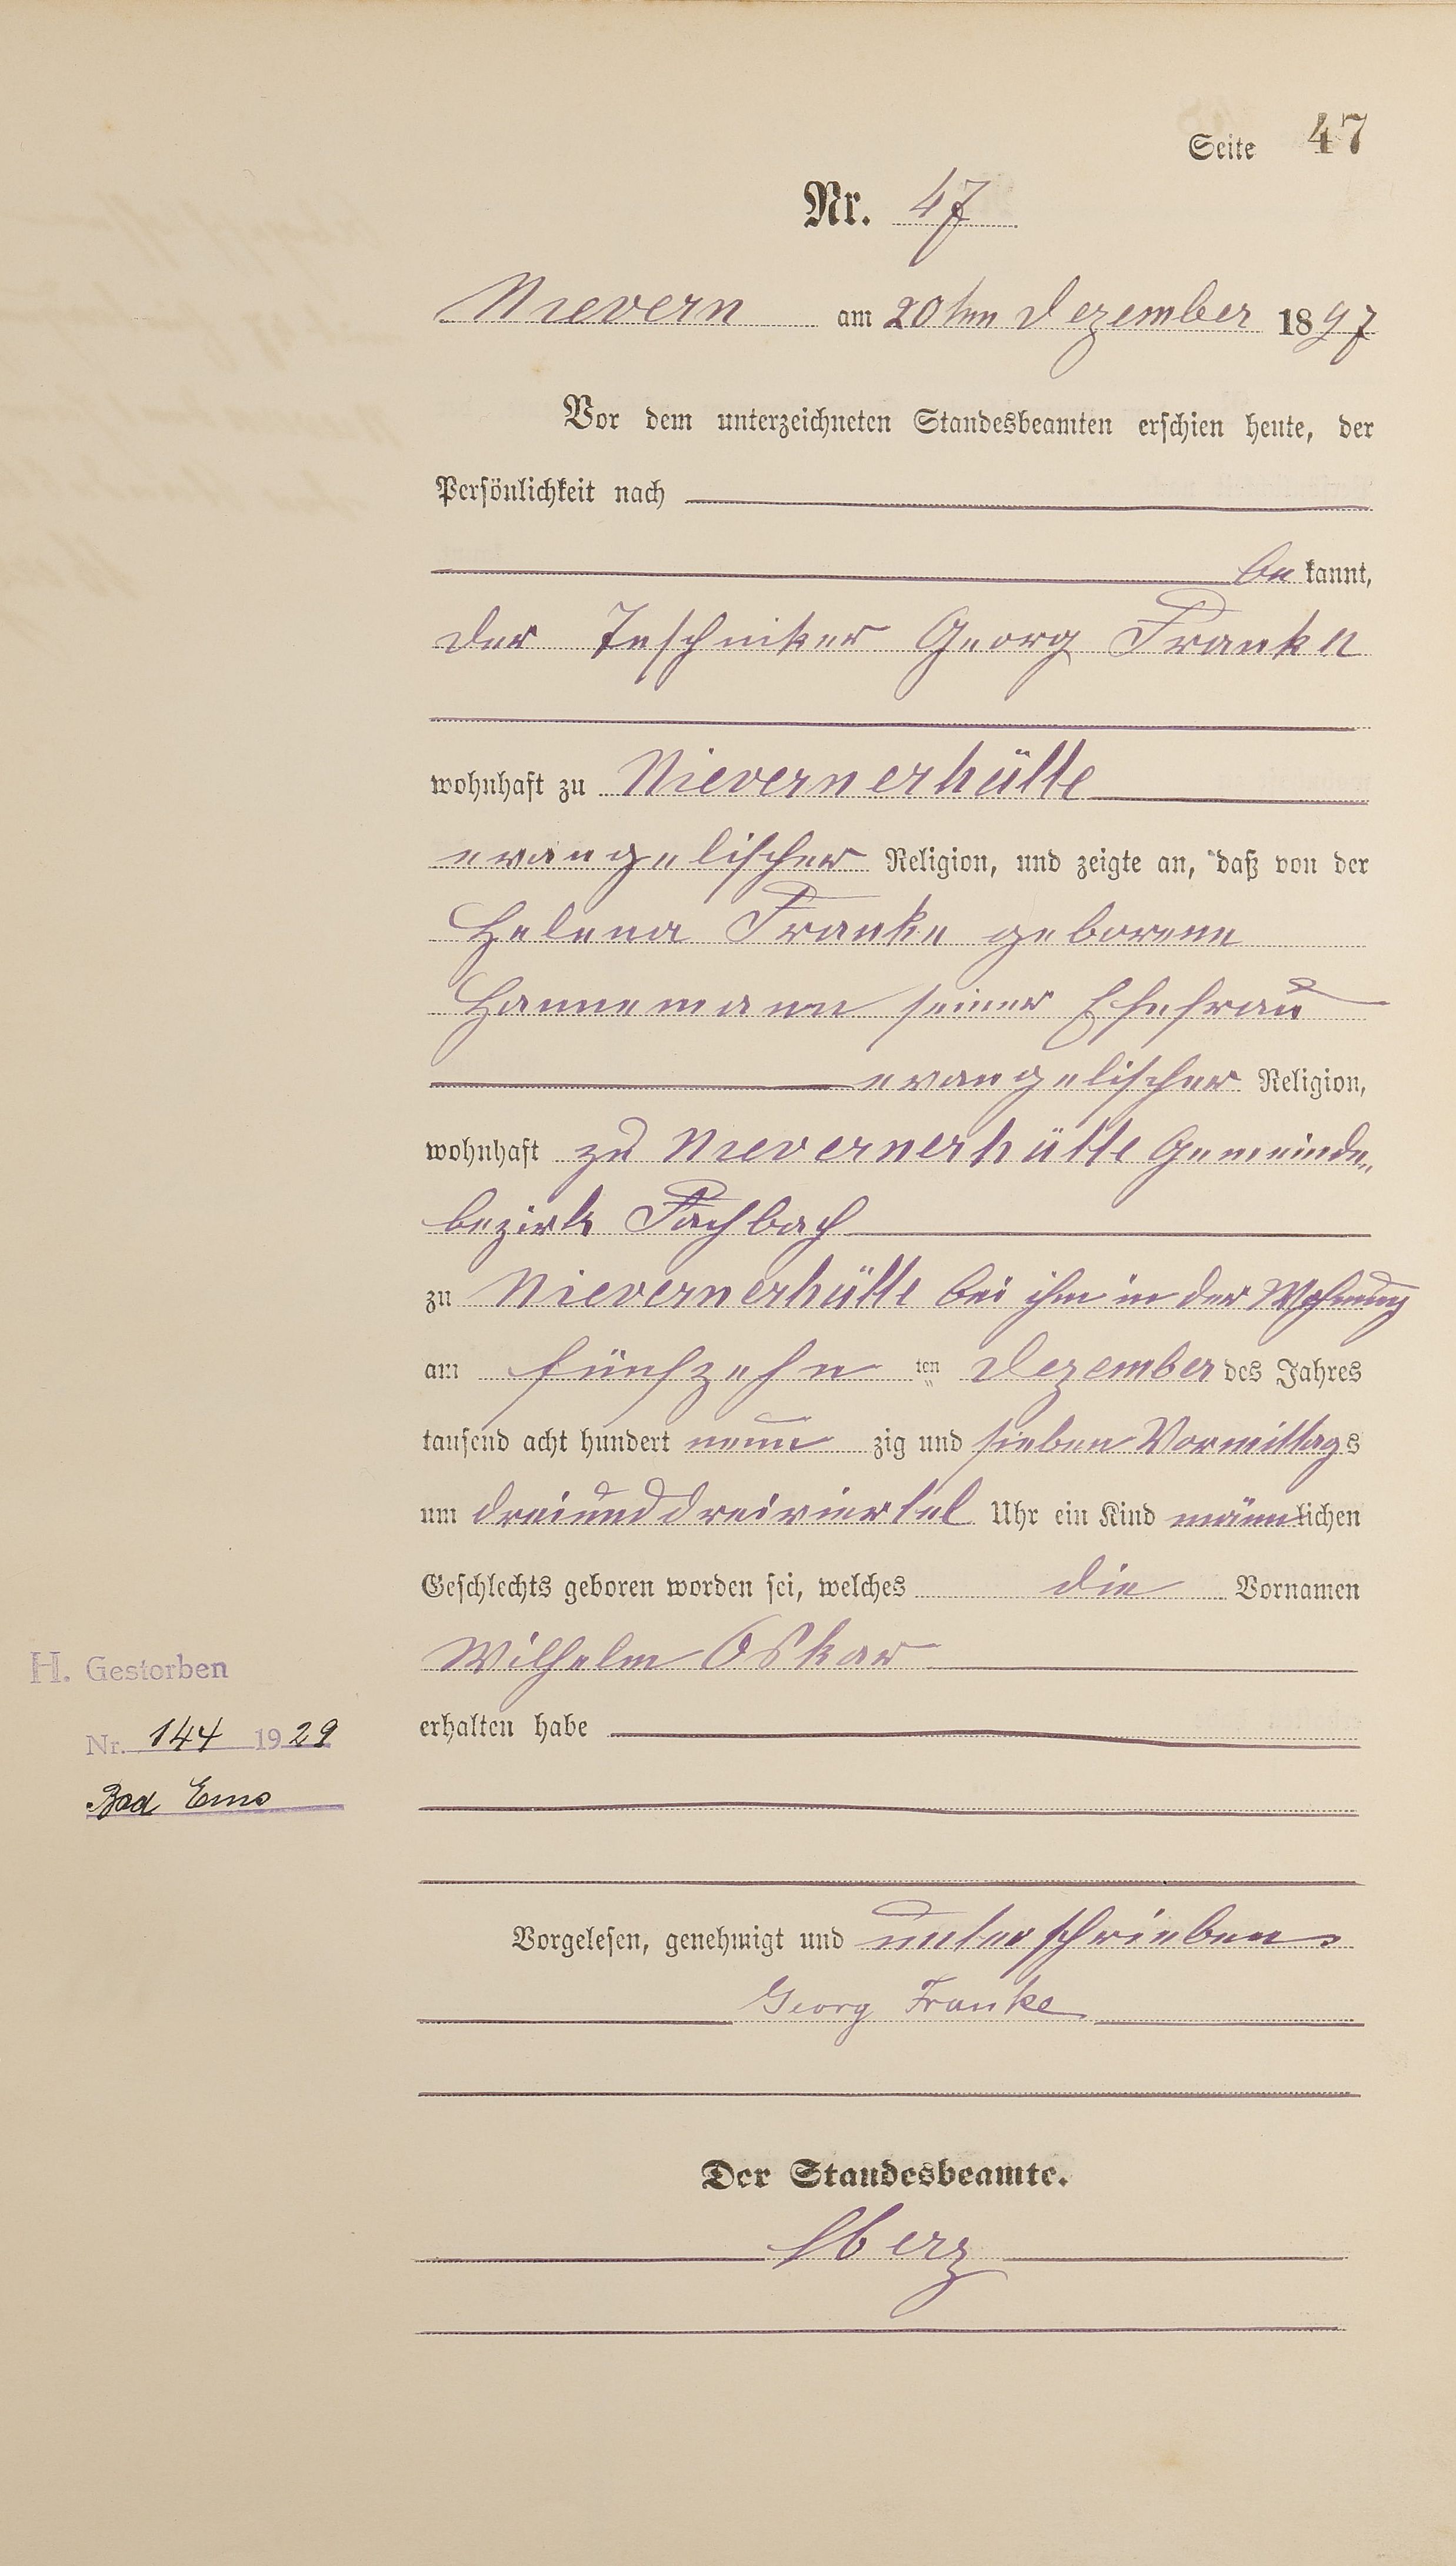 Seite 47
Nr. 47
Nievern am 20ten Dezember 1897
Vor dem unterzeichneten Standesbeamten erschien heute, der
Persönlichkeit nach
be kannt,
der Teschniker Georg Franke
wohnhaft zu Nievernerhütte
evangelischer Religion, und zeigte an, daß von der
Helena Franke geborene
Hannemann seiner Ehefrau
evangelischer Religion,
wohnhaft zu Nievernerhütte Gemeinde„
bezirk Fachbach
zu Nievernerhütte bei ihm in der Wohnung
am fünfzehn ten Dezember des Jahres
tausend acht hundert neun zig und sieben Vormittags
um dreiunddreiviertel Uhr ein Kind männlichen
Geschlechts geboren worden sei, welches die Vornamen
Wilhelm Oskar
H. Gestorben
erhalten habe
Nr. 144 1929
Bad Ems
Vorgelesen, genehmigt und unterschrieben.
Georg Franke
Der Standesbeamte.